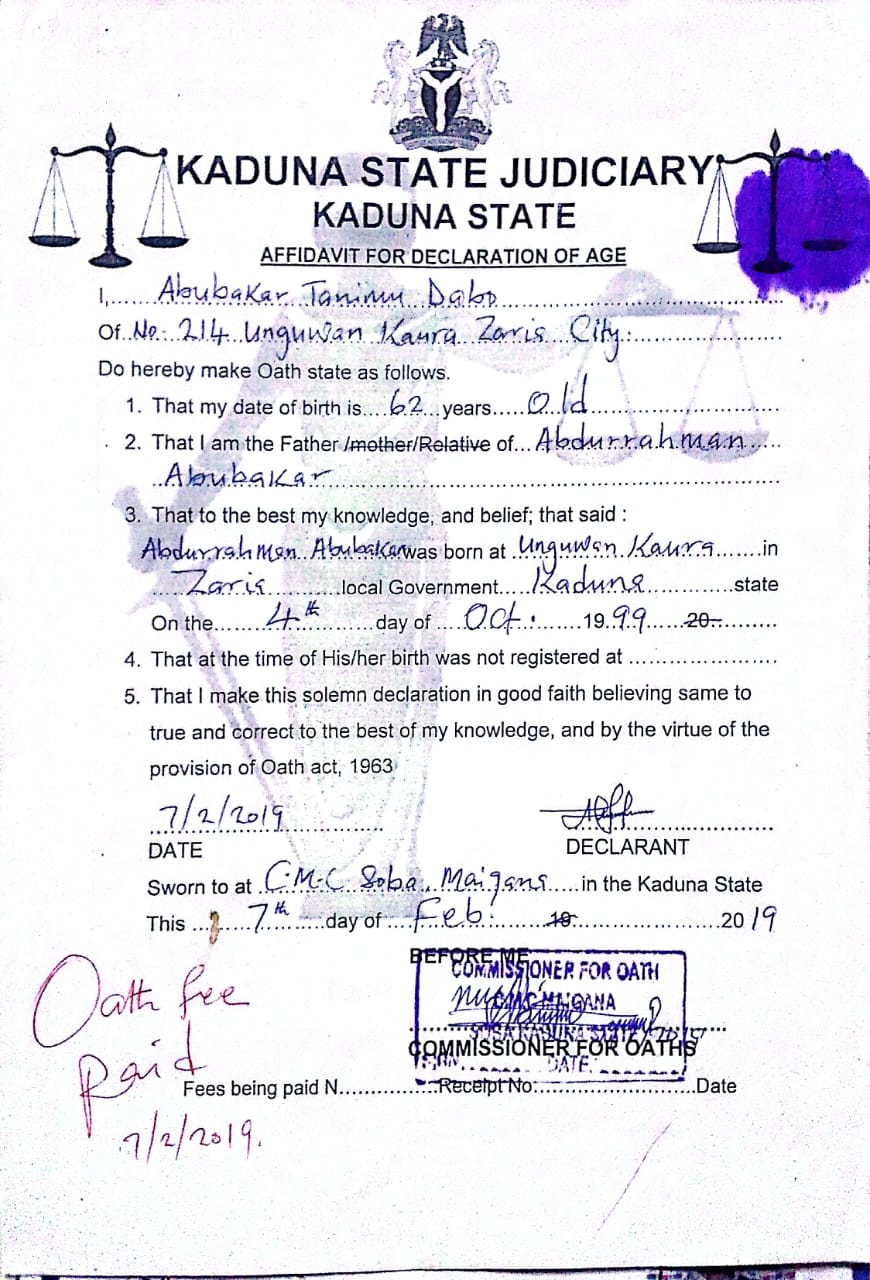 KADUNA STATE JUDICIARY
KADUNA STATE
AFFIDAVIT FOR DECLARATION OF AGE
I,...... Abubakar Tanimu Dabo
Of No: 214 Unguwan Kaura Zaria City.
Do hereby make Oath state as follows.
1. That my date of birth is.... 62 ...years..... Old
2. That I am the Father /mother/Relative of... Abdurrahman
Abubakar
3. That to the best my knowledge, and belief; that said :
Abdurrahman Abubakar was born at Unguwan Kaura .......in
Zaria ..........local Government..... Kaduna ..............state
On the........ 4th ........day of .... Oct. .......19.99......20-..........
4. That at the time of His/her birth was not registered at ......................
5. That I make this solemn declaration in good faith believing same to
true and correct to the best of my knowledge, and by the virtue of the
provision of Oath act, 1963
7/2/2019
DATE
DECLARANT
Sworn to at C.M.C Soba, Maigana .....in the Kaduna State
This ... 7th ........day of .... Feb. ........19......................2019
BEFORE ME
COMMISSIONER FOR OATH
CMC MAIGANA
SOBA KADUNA STATE
COMMISSIONER FOR OATHS
DATE
Oath fee
Paid
Fees being paid N...............Receipt No:........................Date
7/2/2019.